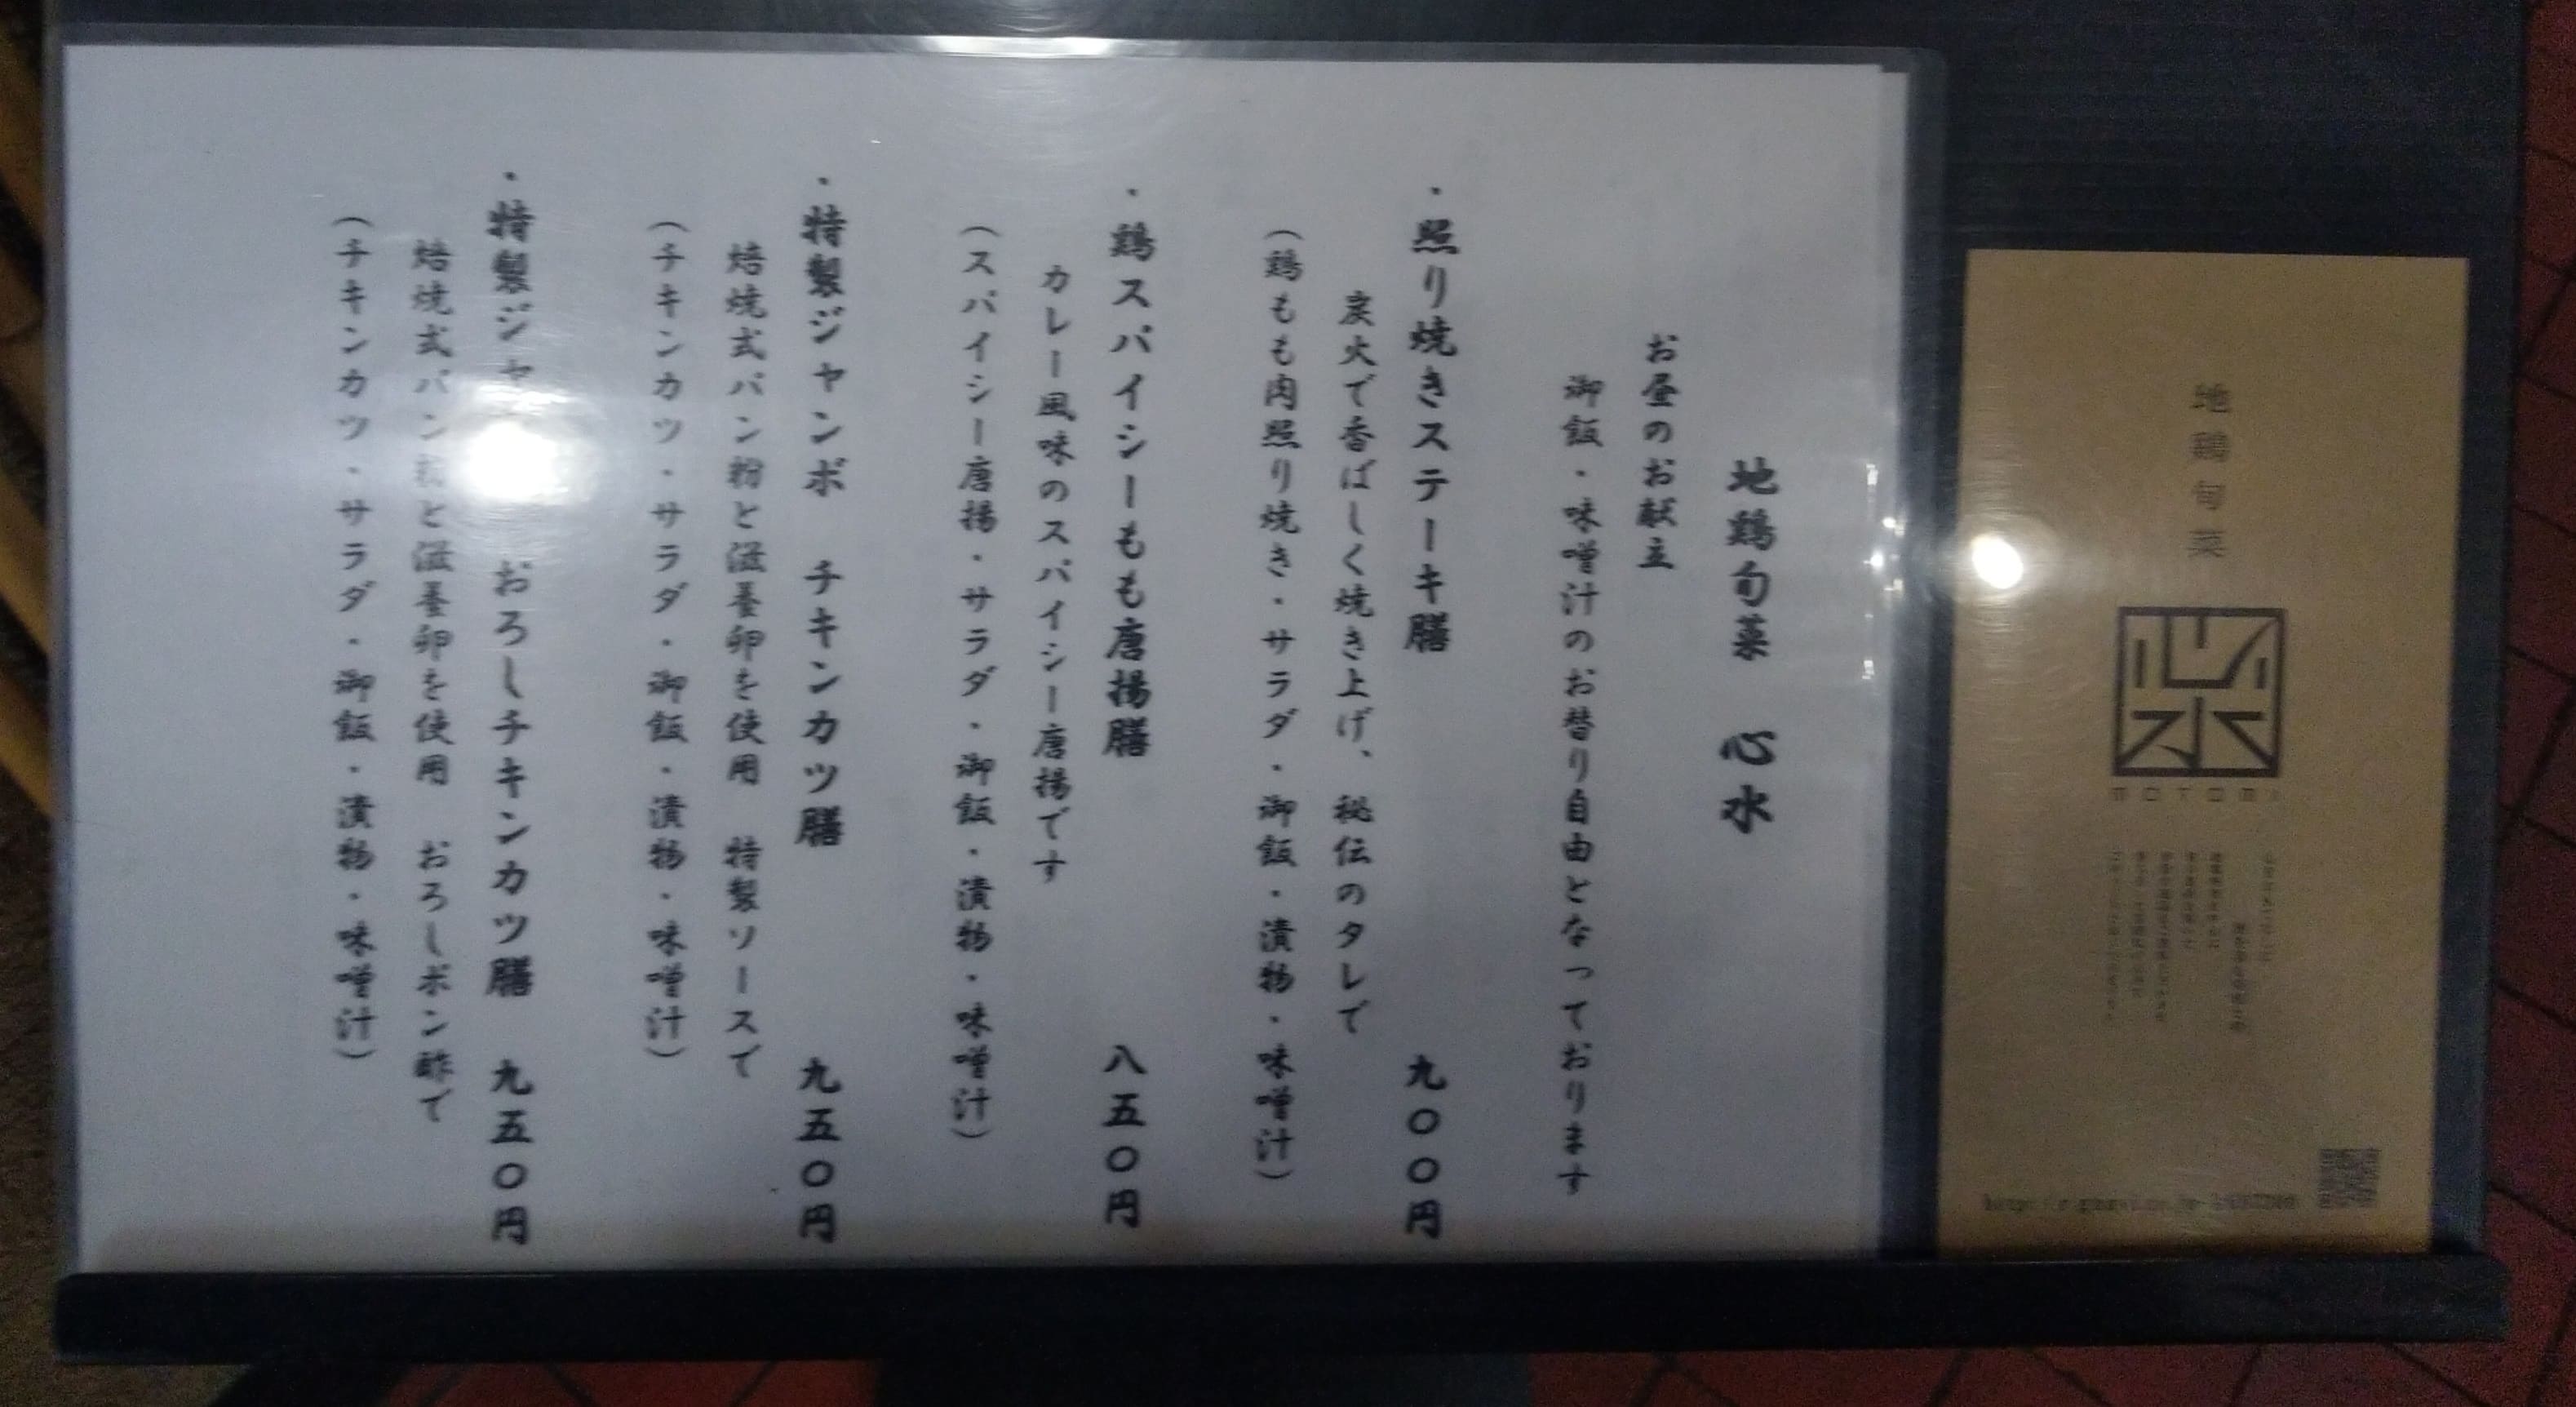 地鶏旬菜　心水
お昼のお献立
御飯・味噌汁のお替り自由となっております
・照り焼きステーキ膳　九〇〇円
炭火で香ばしく焼き上げ、秘伝のタレで
（鶏もも肉照り焼き・サラダ・御飯・漬物・味噌汁）
・鶏スパイシーもも唐揚膳　八五〇円
カレー風味のスパイシー唐揚です
（スパイシー唐揚・サラダ・御飯・漬物・味噌汁）
・特製ジャンボ　チキンカツ膳　九五〇円
焙焼式パン粉と滋養卵を使用　特製ソースで
（チキンカツ・サラダ・御飯・漬物・味噌汁）
・特製ジャ　おろしチキンカツ膳　九五〇円
焙焼式パン粉と滋養卵を使用　おろしポン酢で
（チキンカツ・サラダ・御飯・漬物・味噌汁）
地鶏旬菜
心水